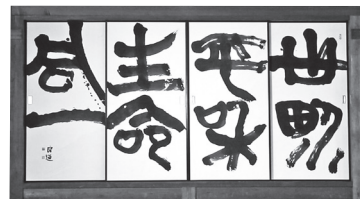 世界
平和
生命
合一